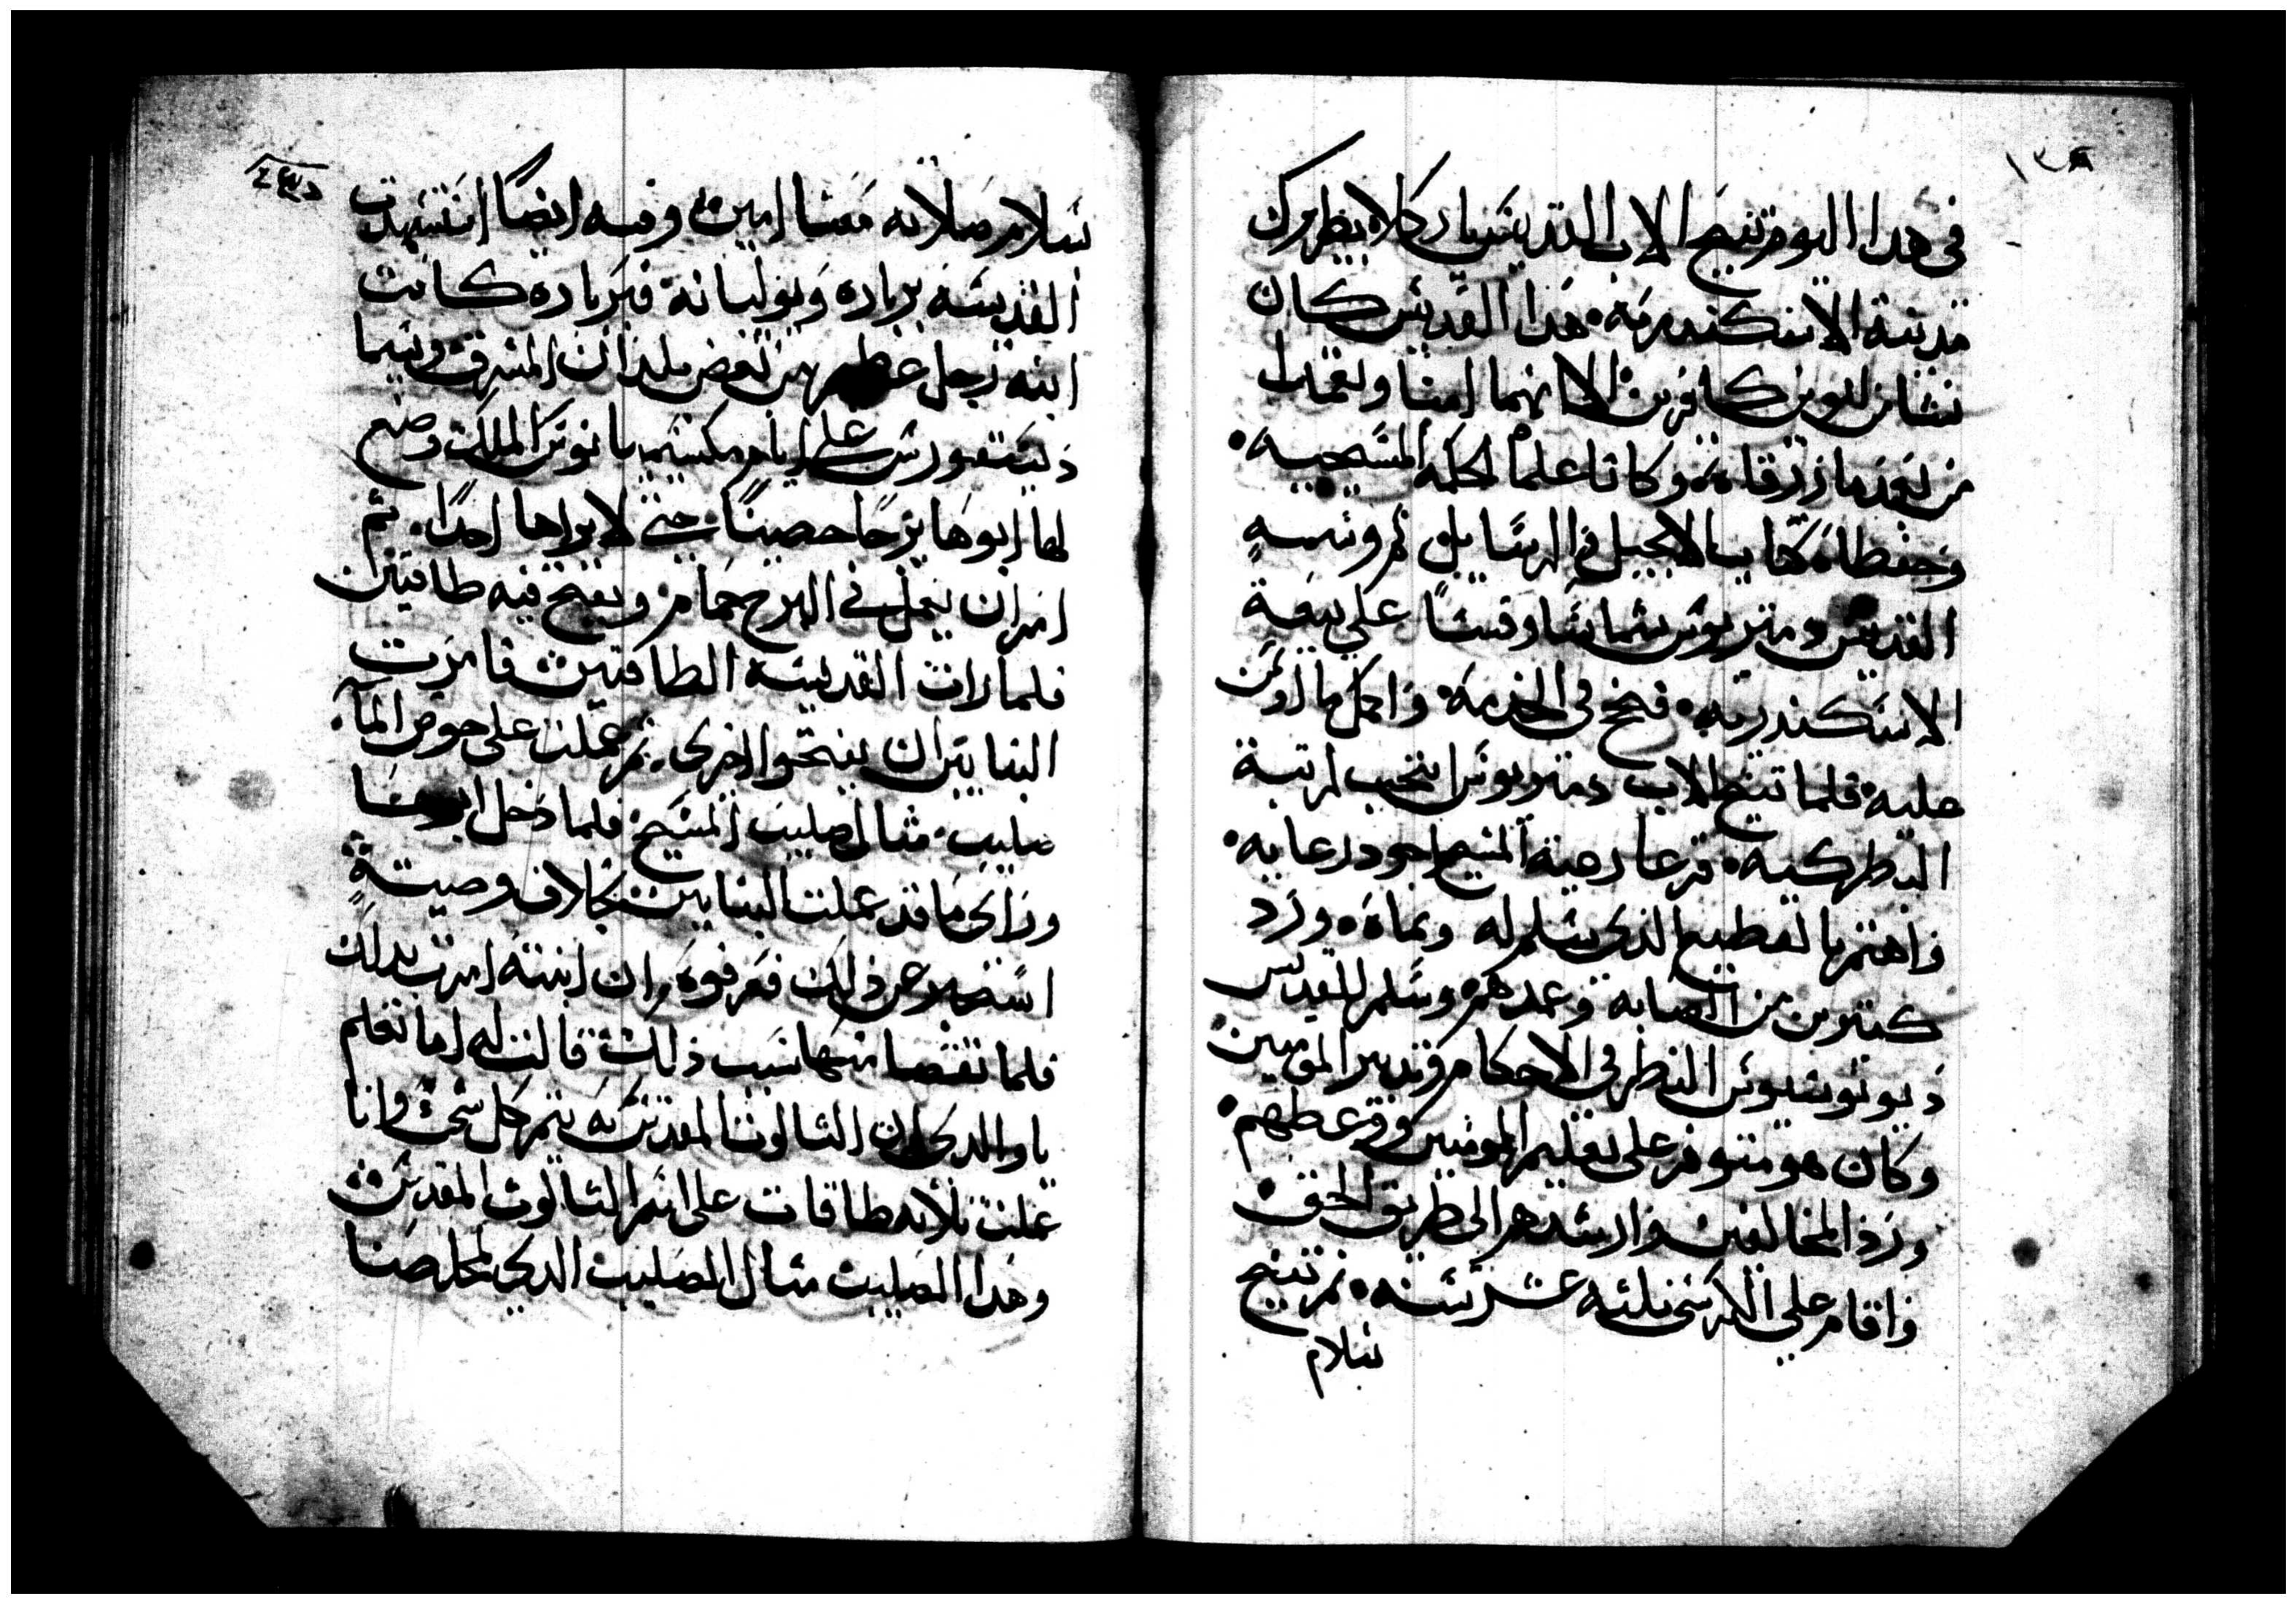 في هدا اليوم تنيح الاب القديس ياركلا بطريرك
مدينة الاسكندريه هدا القديس كان
نشا من ابوين كافرين الا انهما امنا وتعمدا
من بعد ما زرقاه وكانا علماه الحكمه المسيحيه
وحفظاه كتاب الانجيل والرسايل ثم وسمه
القديس دمتريوس شماسًا وقسًا على بيعة
الاسكندريه فنجح في الخدمه واكمل ما اوتمن
عليه فلما تنيح الاب دمتريوس انتخب لرتبة
البطركيه فرعا رعية المسيح اجود رعايه
واهتم بالقطيع الذي سلم له ونماه ورد
كتيرين من الصابه وعمدهم وسلم للقديس
ديونوسيوس النظر في الاحكام وتدبير المومنين
وكان هو متوفر على تعليم المومنين ووعظهم
ورد المخالفين وارشدهم الى طريق الحق
واقام على الكرسي تلته عشر سنه ثم تنيح
سلام
سلام صلاته معنا امين وفيه ايضًا استشهدت
القديسه برباره ويوليانه فبرباره كانت
ابنه رجل عظيم من بعض بلدان المشرق يسما
ديسقورس على ايام مكسيميانوس الملك وضع
لها ابوها برجًا حصينًا حتى لا يراها احدًا ثم
امر ان يعمل في البرج حمام ويفتح فيه طاقتين
فلما رات القديسه الطاقتين فامرت
البنايين ان يفتحوا اخرى ثم عملت على حوض الما
صليب مثال صليب المسيح فلما دخل ابوها
وراى ما قد عملت البنايين بخلاف وصيتةٍ
استفهم عن ذلك فعرفوه ان ابنته امرت بدلك
فلما تقصا منها سبب ذلك قالت له اما تعلم
يا والدي ان التالوت المقدس به يتم كل شي وانا
عملت تلاته طاقات على اسم التالوت المقدس
وهدا الصليب مثال الصليب الدي لمخلصنا